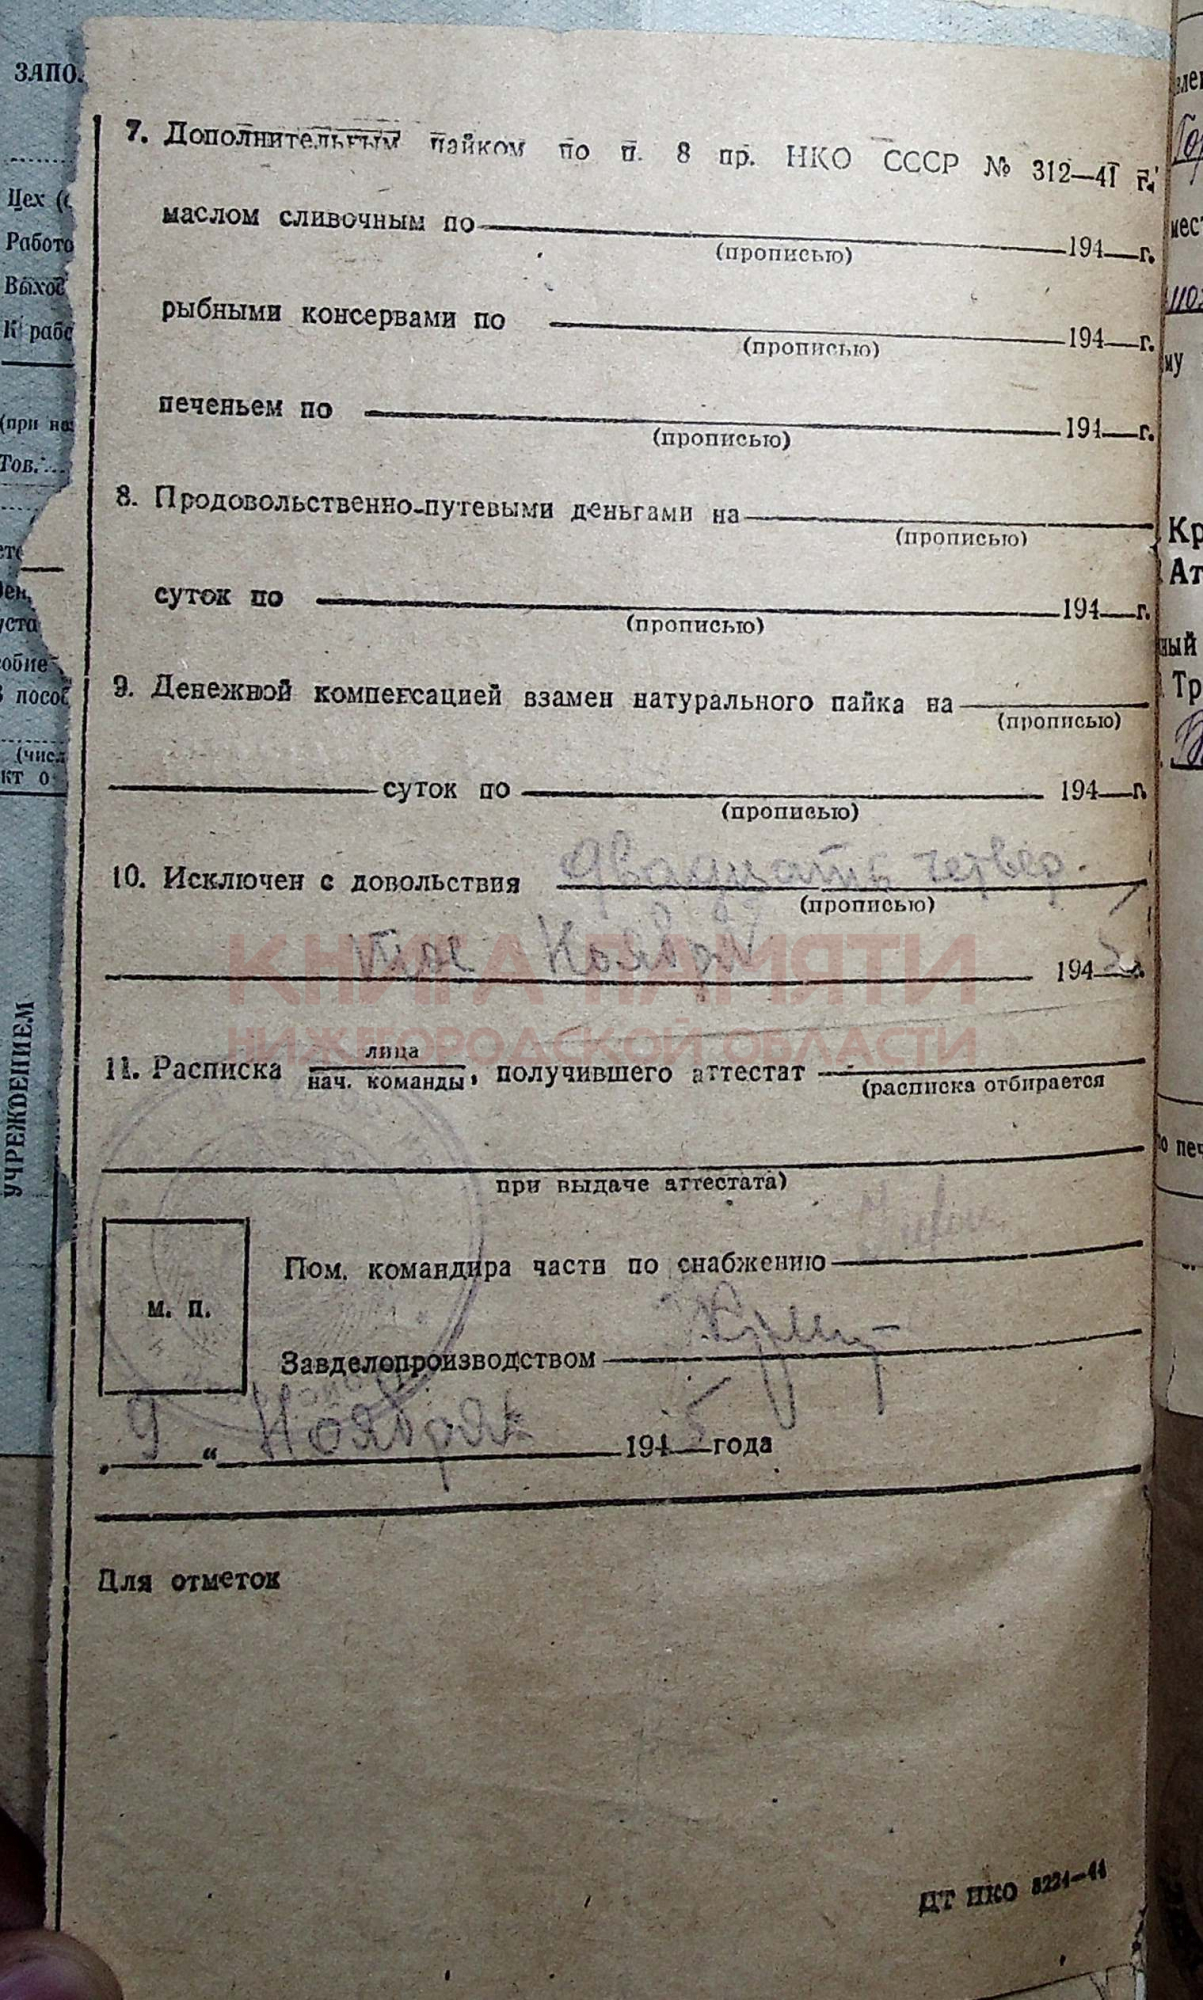 ЗАПО
Цех (
Работо
Выход
К рабо
(при на
Тов.
7. Дополнительным пайком по п. 8 пр. НКО СССР № 312—41 г.
маслом сливочным по 194 г.
(прописью)
рыбными консервами по 194 г.
(прописью)
печеньем по 194 г.
(прописью)
8. Продовольственно-путевыми деньгами на
(прописью)
суток по 194 г.
(прописью)
9. Денежной компенсацией взамен натурального пайка на
(прописью)
суток по 194 г.
(прописью)
10. Исключен с довольствия двадцать четвер-
(прописью)
тое Ноября 1945 г.
КНИГА ПАМЯТИ
НИЖЕГОРОДСКОЙ ОБЛАСТИ
11. Расписка лица
нач. команды, получившего аттестат
(расписка отбирается
при выдаче аттестата)
Пом. командира части по снабжению
м. п.
Завделопроизводством
„9“ Ноября 1945 года
Для отметок
ЦТ НКО 8224—44
УЧРЕЖДЕНИЕМ